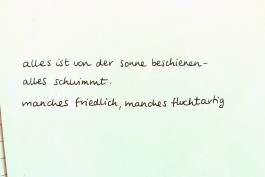 alles ist von der sonne beschienen-
alles schwimmt.
manches friedlich, manches fluchtartig